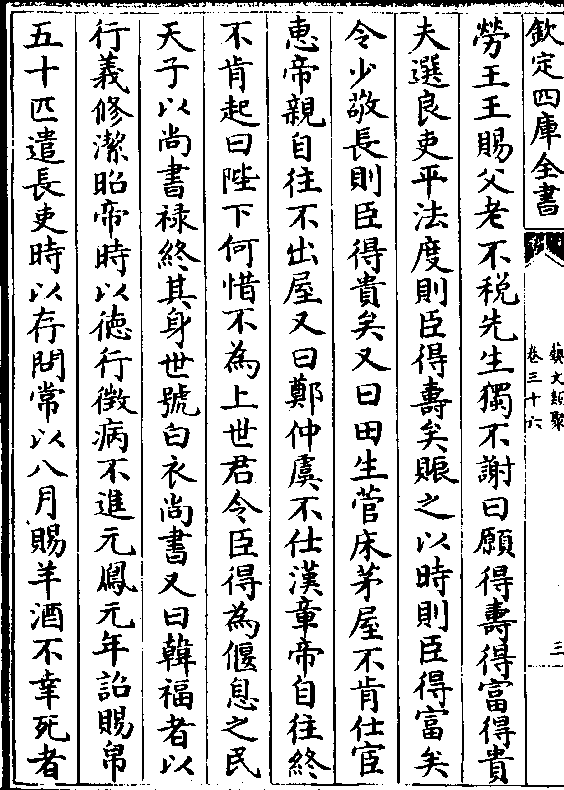 欽定四庫全書
藝文類聚
卷三十六
三
勞王王賜父老不税先生獨不謝曰願得壽得富得貴
夫選良吏平法度則臣得壽矣賑之以時則臣得富矣
令少敬長則臣得貴矣又曰田生菅床茅屋不肯仕宦
惠帝親自往不出屋又曰鄭仲虞不仕漢章帝自往終
不肯起曰陛下何惜不為上世君令臣得為偃息之民
天子以尚書禄終其身世號白衣尚書又曰韓福者以
行義修潔昭帝時以徳行徴病不進元鳳元年詔賜帛
五十匹遣長吏時以存問常以八月賜羊酒不幸死者